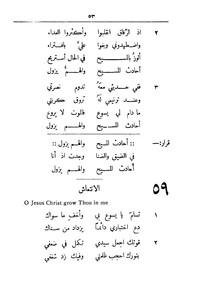 ٥٣
٢ اذ الرفاق انقلبوا وأكثروا العداء
واضطهدوني بغوا عليّ بافتراء
ألوذ بالمسيح في الحال أستريح
أحادث المسيح والهم يزول
٣ ففي حديثي معه تدوم نصرتي
وعند ترنيمي له تروق كربتي
ما دام لي يسوع فالموت لا يروع
أحادث المسيح والهم يزول
قرار:— :: أحادث المسيح والهم يزول ::
في الضيق والضنا وجدت اذ أنا
أحادث المسيح والهم يزول
٥٩ الانتعاش
O Jesus Christ grow Thou in me
١ تمام يا يسوع بي وأخف ما سواك
دع اختباري دائماً يزداد من سناك
٢ قوتك اجعل سيدي تكل في ضعفي
بنورك احجب ظلمتي وفيك زد شغفي